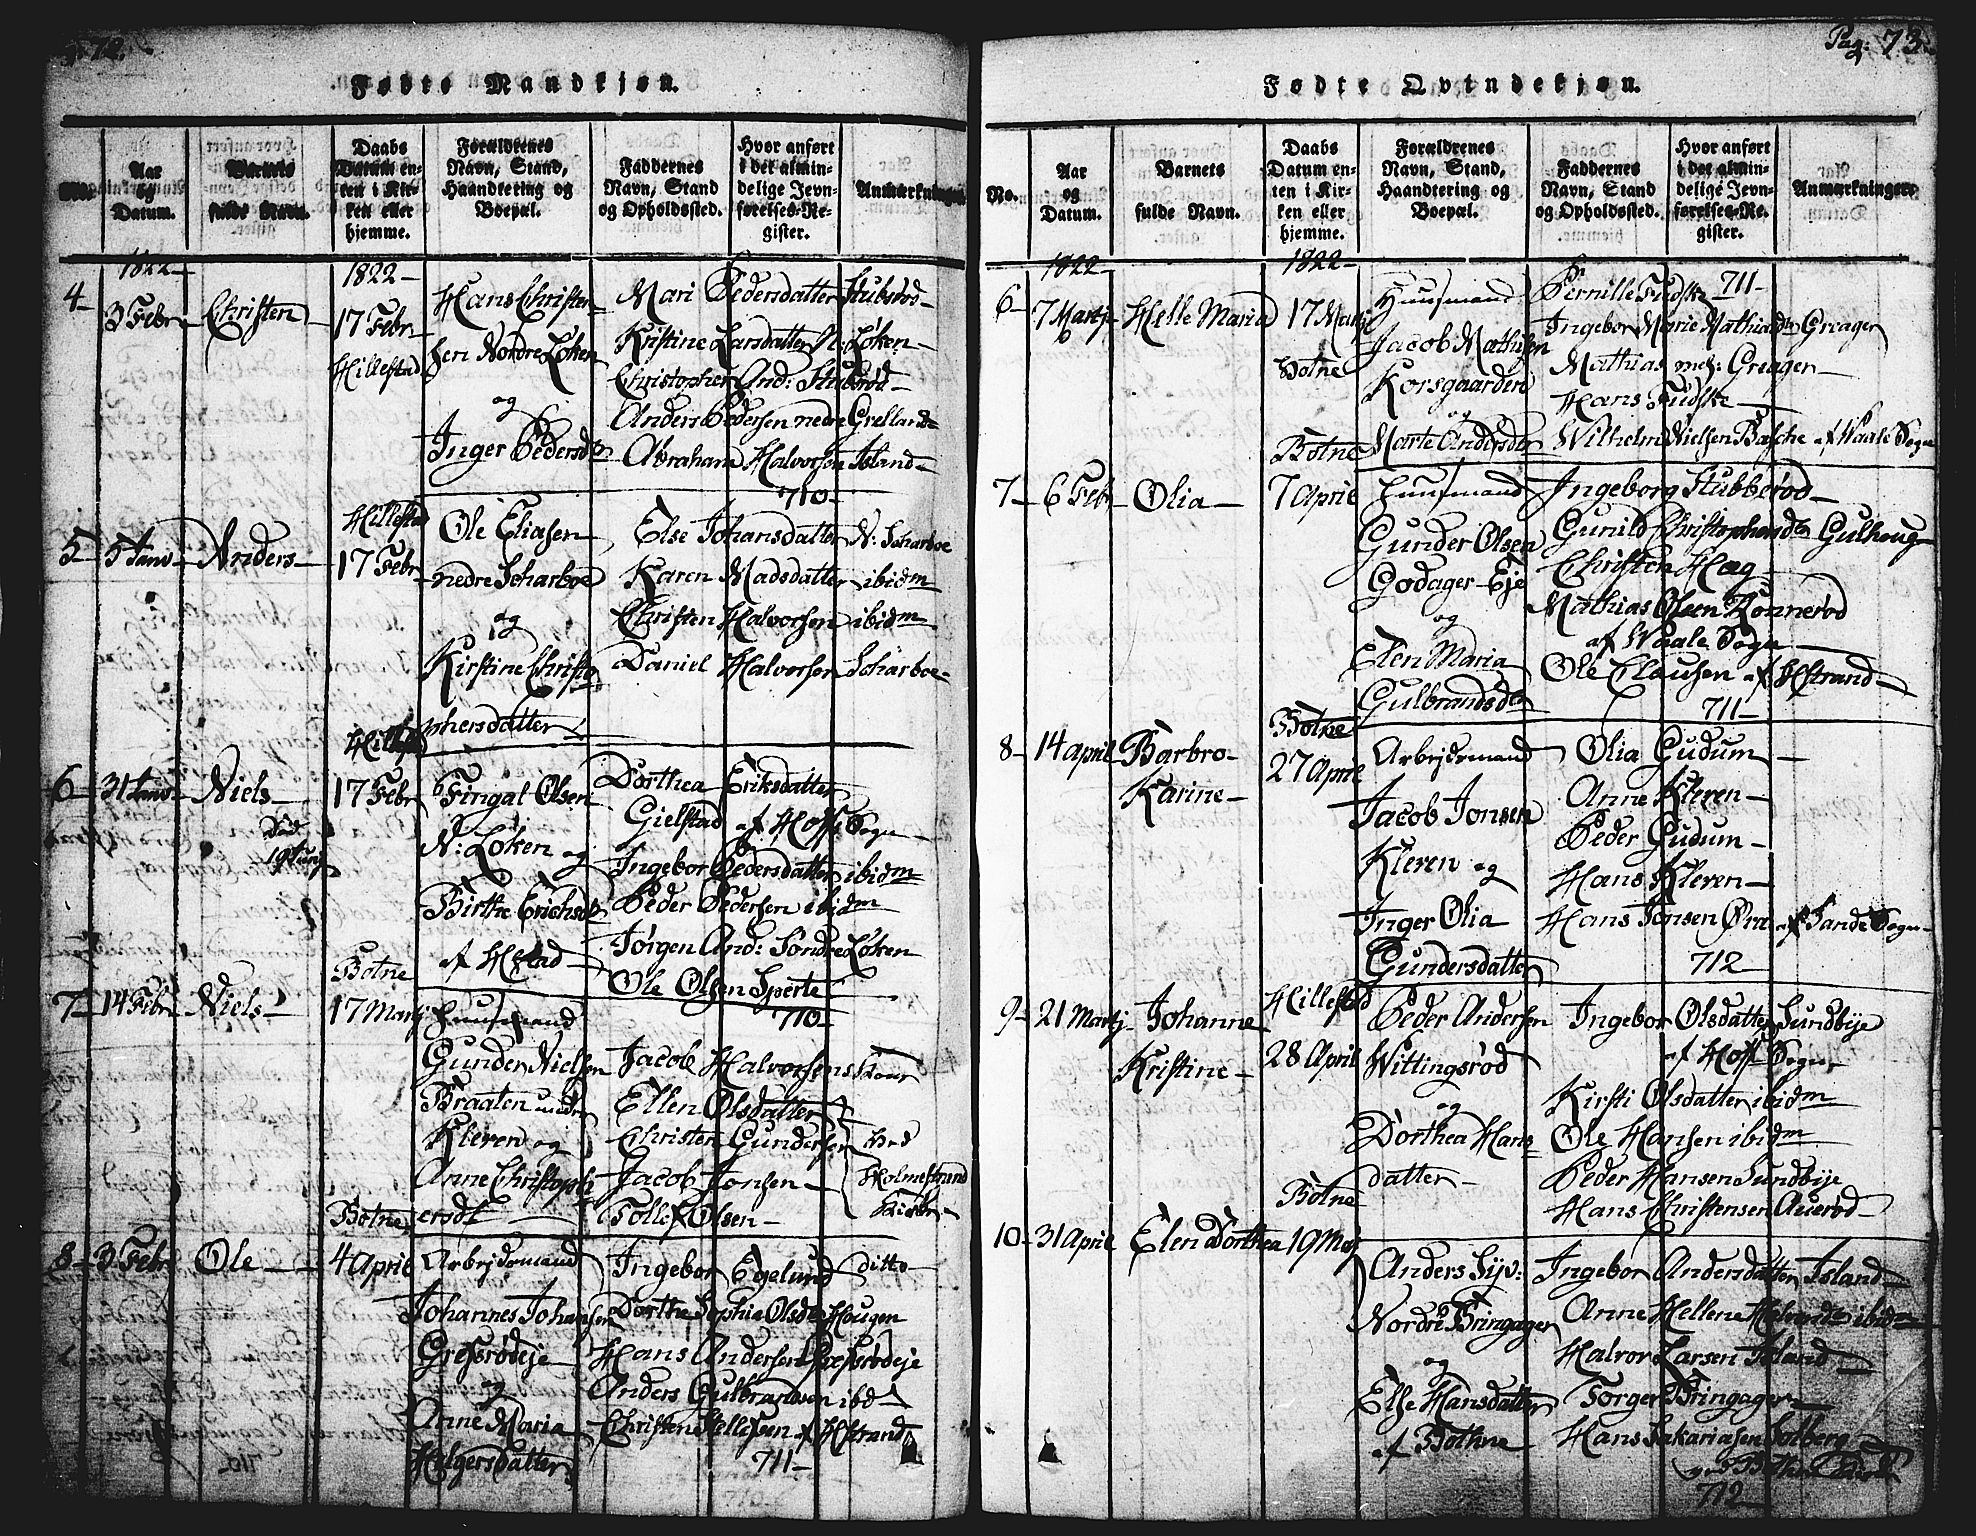 72.
Fødte Mandkjøn.
No.
Aar og Datum.
Barnets fulde Navn.
Daabs Datum enten i Kirken eller hjemme.
Forældrenes Navn, Stand, Haandtering og Boepæl.
Faddernes Navn, Stand og Opholdssted.
Hvor anført i det almindelige Jevnførelses-Register.
Anmærkninger.
1822
4
3 Febr
Christen
1822
17 Febr
Hillestad
Hans Christen
sen Nordre Løken
og
Inger Pedersdr
Mari Pedersdatter Stubsrød
Kristine Larsdatter N: Løken
Christopher And: Stubsrød
Anders Pedersen nedre Grelland
Abraham Halvorsen Island
710
5
5 Janv
Anders
Hillestad
17 Febr
Ole Eliasen
nedre Scharboe
og
Kirstine Christo
phersdatter
Else Johansdatter N: Scharboe
Karen Madsdatter ibidm
Christen Halvorsen ibidm
Daniel Halvorsen Scharboe
6
31 Janv
Niels
Død
19 Junj
17 Febr
Fingal Olsen
N: Løken og
Birthe Erichsdr
af Hstad
Dorthea Eriksdatter
Gielstad af Hoffs Sogn
Ingebor Pedersdatter ibidm
Peder Pedersen ibidm
Jørgen And: Søndre Løken
Ole Olsen Sperte
710
7
14 Febr
Niels
Botne
17 Martj
Huusmand
Gunder Nielsen
Braaten under
Kleren og
Anne Christoph
ersdr
Jacob Halvorsens Kone
Ellen Olsdatter
Christen Gundersen
Jacob Jonsen
Tollef Olsen
ved
Holmestrand
Kirke
8
3 Febr
Ole
Botne
4 April
Arbejdsmand
Johannes Johansen
Gresrødeje
og
Anne Maria
Helgersdatter
Ingebor Egelund ditto
Dorthe Sophia Olsdr Hougen
Hans Andersen Gresrødeje
Anders Gulbrandsen ibd
Christen Hellesen af Hstrand
711
Pag: 73.
Fødte Qvindekjøn.
No.
Aar og Datum.
Barnets fulde Navn.
Daabs Datum enten i Kirken eller hjemme.
Forældrenes Navn, Stand, Haandtering og Boepæl.
Faddernes Navn, Stand og Opholdssted.
Hvor anført i det almindelige Jevnførelses-Register.
Anmærkninger.
1822
6
7 Martj
Helle Maria
1822
17 Martj
Botne
Huusmand
Jacob Mathisen
Korsgaarden
og
Marte Andersdr
Pernille Fudske 711
Ingebor Marie Mathiasdr Greager
Mathias Greager
Hans Fudske
Wilhelm Nielsen Basche af Waale Sogn
7
6 Febr
Olia
Botne
7 April
Huusmand
Gunder Olsen
Godager Eje
og
Elen Maria
Gulbrandsdr
Ingeborg Stubberød
Gunild Christophersdr Gulhoug
Christen Hag
Mathias Olsen Konnerød
af Waale Sogn
Ole Clausen af Hstrand
711
8
14 April
Barbro
Karine
Botne
27 April
Arbejdsmand
Jacob Jonsen
Kleren og
Inger Olia
Gundersdatter
Olia Gudum
Anne Kleren
Peder Gudum
Hans Kleren
Hans Jensen Øra af Sande Sogn
712
9
21 Martj
Johanne
Kristine
Hillestad
28 April
Peder Andersen
Wittingsrød
og
Dorthea Hans
datter
Ingebor Olsdatter Sundbye
af Hoffs Sogn
Kirsti Olsdatter ibidm
Ole Hansen ibidm
Peder Hansen Sundbije
Hans Christensen Auerød
10
31 April
Elen Dorthea
Botne
19 Maj
Anders Syv:
Nordre Bringager
og
Else Hansdatter
af Bothne
Ingebor Andersdatter Island
Anne Hellene Halvorsdr ibidm
Halvor Larsen Island
Torger Bringager
Hans Sakariasen Solberg
712